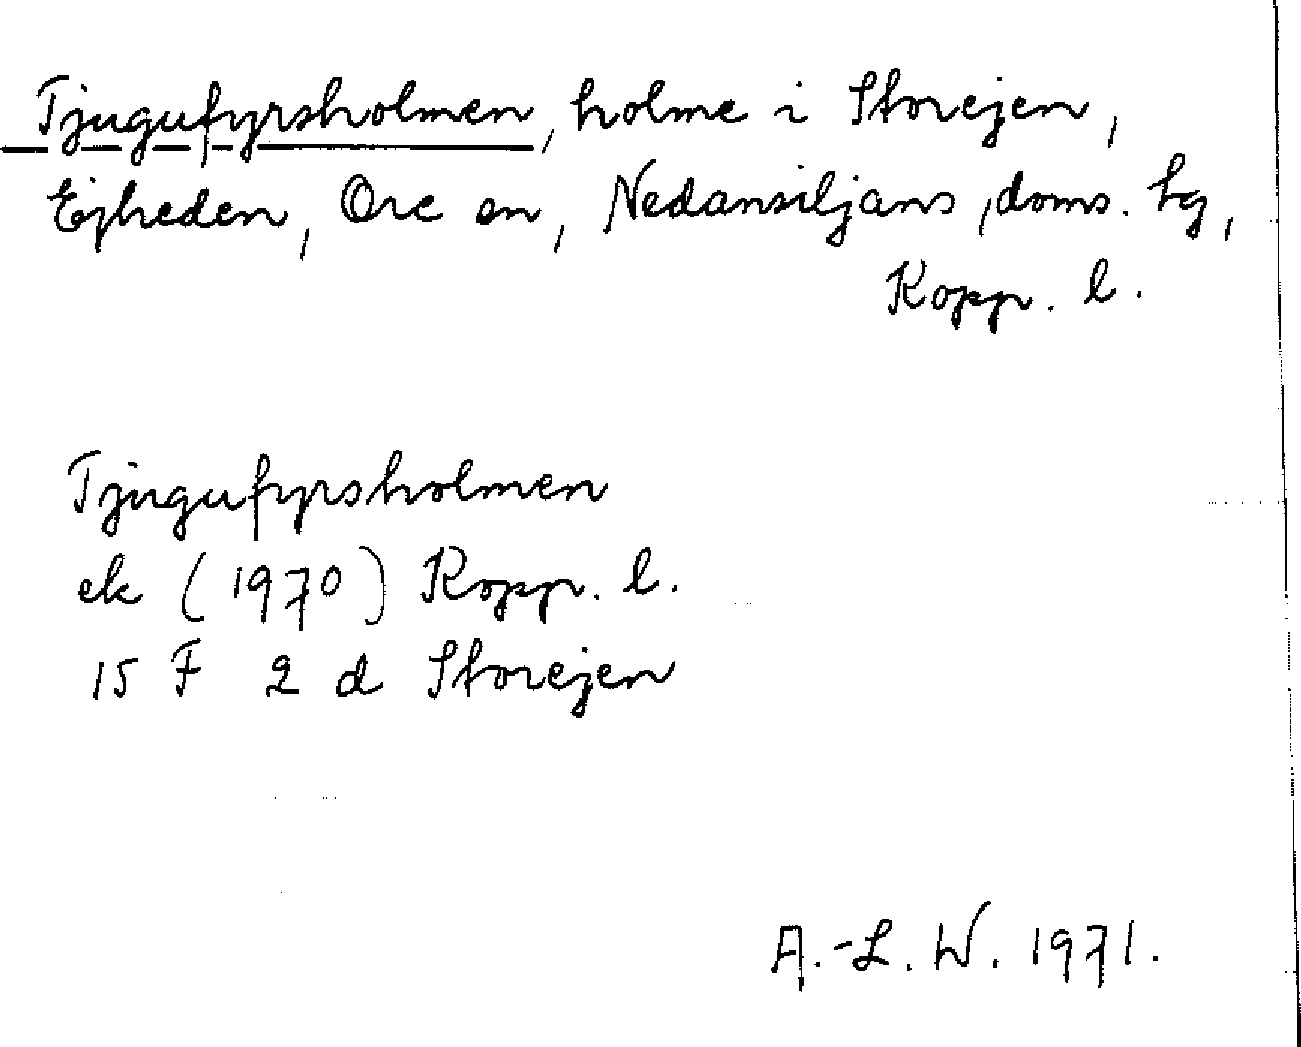 Tjugufyrsholmen, holme i Storejen,
Ejheden, Ore sn, Nedansiljans, doms. hg,
Kopp. l.
Tjugufyrsholmen
ek (1970) Kopp. l.
15 F 2 d Storejen
A.-L. W. 1971.